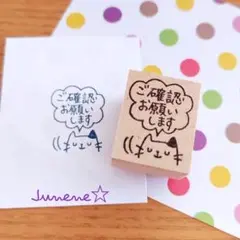 ご確認
お願い
します
ご確認
お願い
します
Junene☆